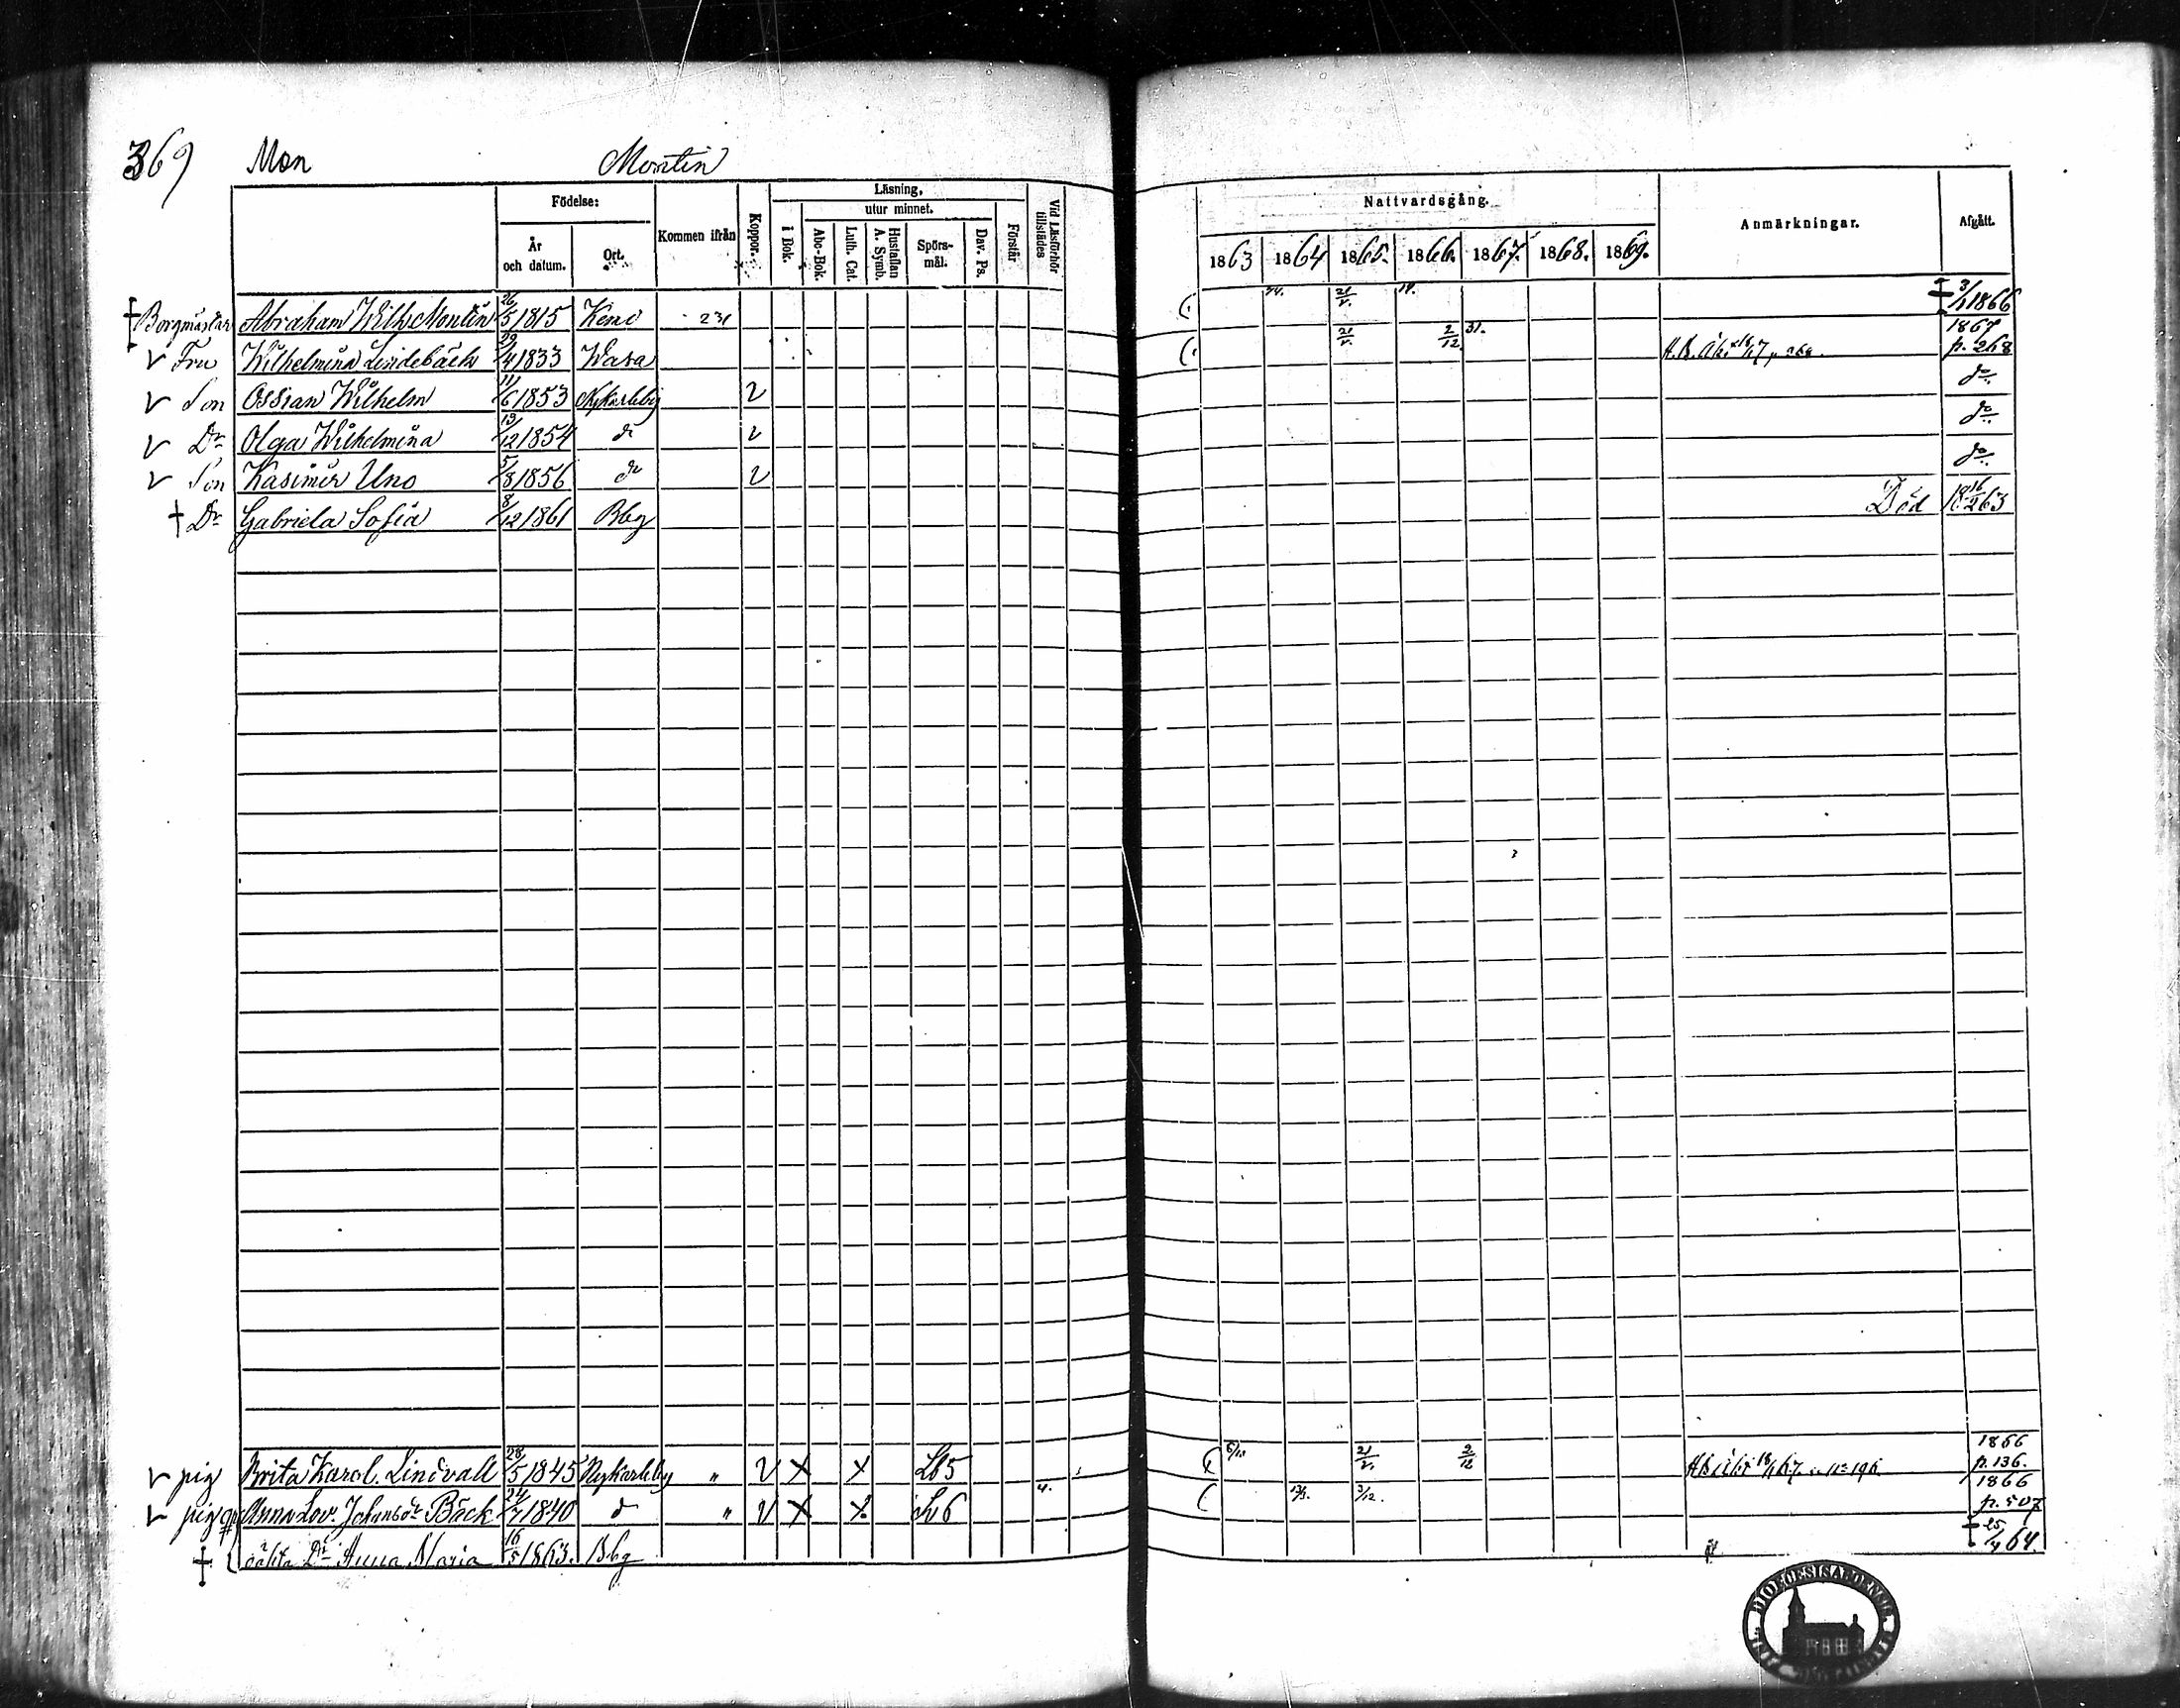 369 Mon Montin
Födelse: Läsning, Nattvardsgång.
utur minnet.
År och datum. Ort. Kommen ifrån Koppor. i Bok. Abc-Bok. Luth. Cat. Hustaflan A. Symb. Spörs-mål. Dav. Ps. Förstår Vid Läsförhör tillstädes 1863 1864 1865. 1866. 1867. 1868. 1869. Anmärkningar. Afgått.
† Borgmästar Abraham Wilh. Montin 26/5 1815 Kemi 231 21/V. 3/1 1866
v Fru Wilhelmina Lindebäck 29/4 1833 Wasa 21/V. 2/12 31. 1867 p. 268
v Son Ossian Wilhelm 11/6 1853 Nykarleby v do
v Dr Olga Wilhelmina 13/12 1854 do v do
v Son Kasimir Uno 5/8 1856 do v do
† Dr Gabriela Sofia 8/12 1861 Bbg Död 16/2 63
v pig Brita Karol. Lindvall 28/5 1845 Nykarleby " v X X Lb 5 21/V. 2/12 1866 p. 136.
v pig Anna Lov. Johansdr Bäck 24/7 1840 d " v X X 6 4. 3/12. 1866 p. 507
† oäkta Dr Anna Maria 16/5 1863. Bbg † 25/4 64.